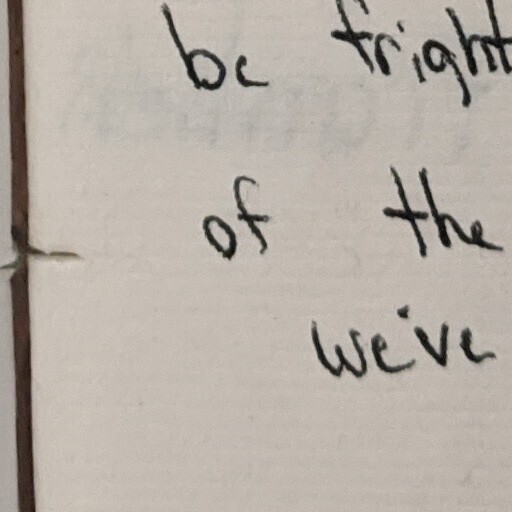 be fright
of the
we've